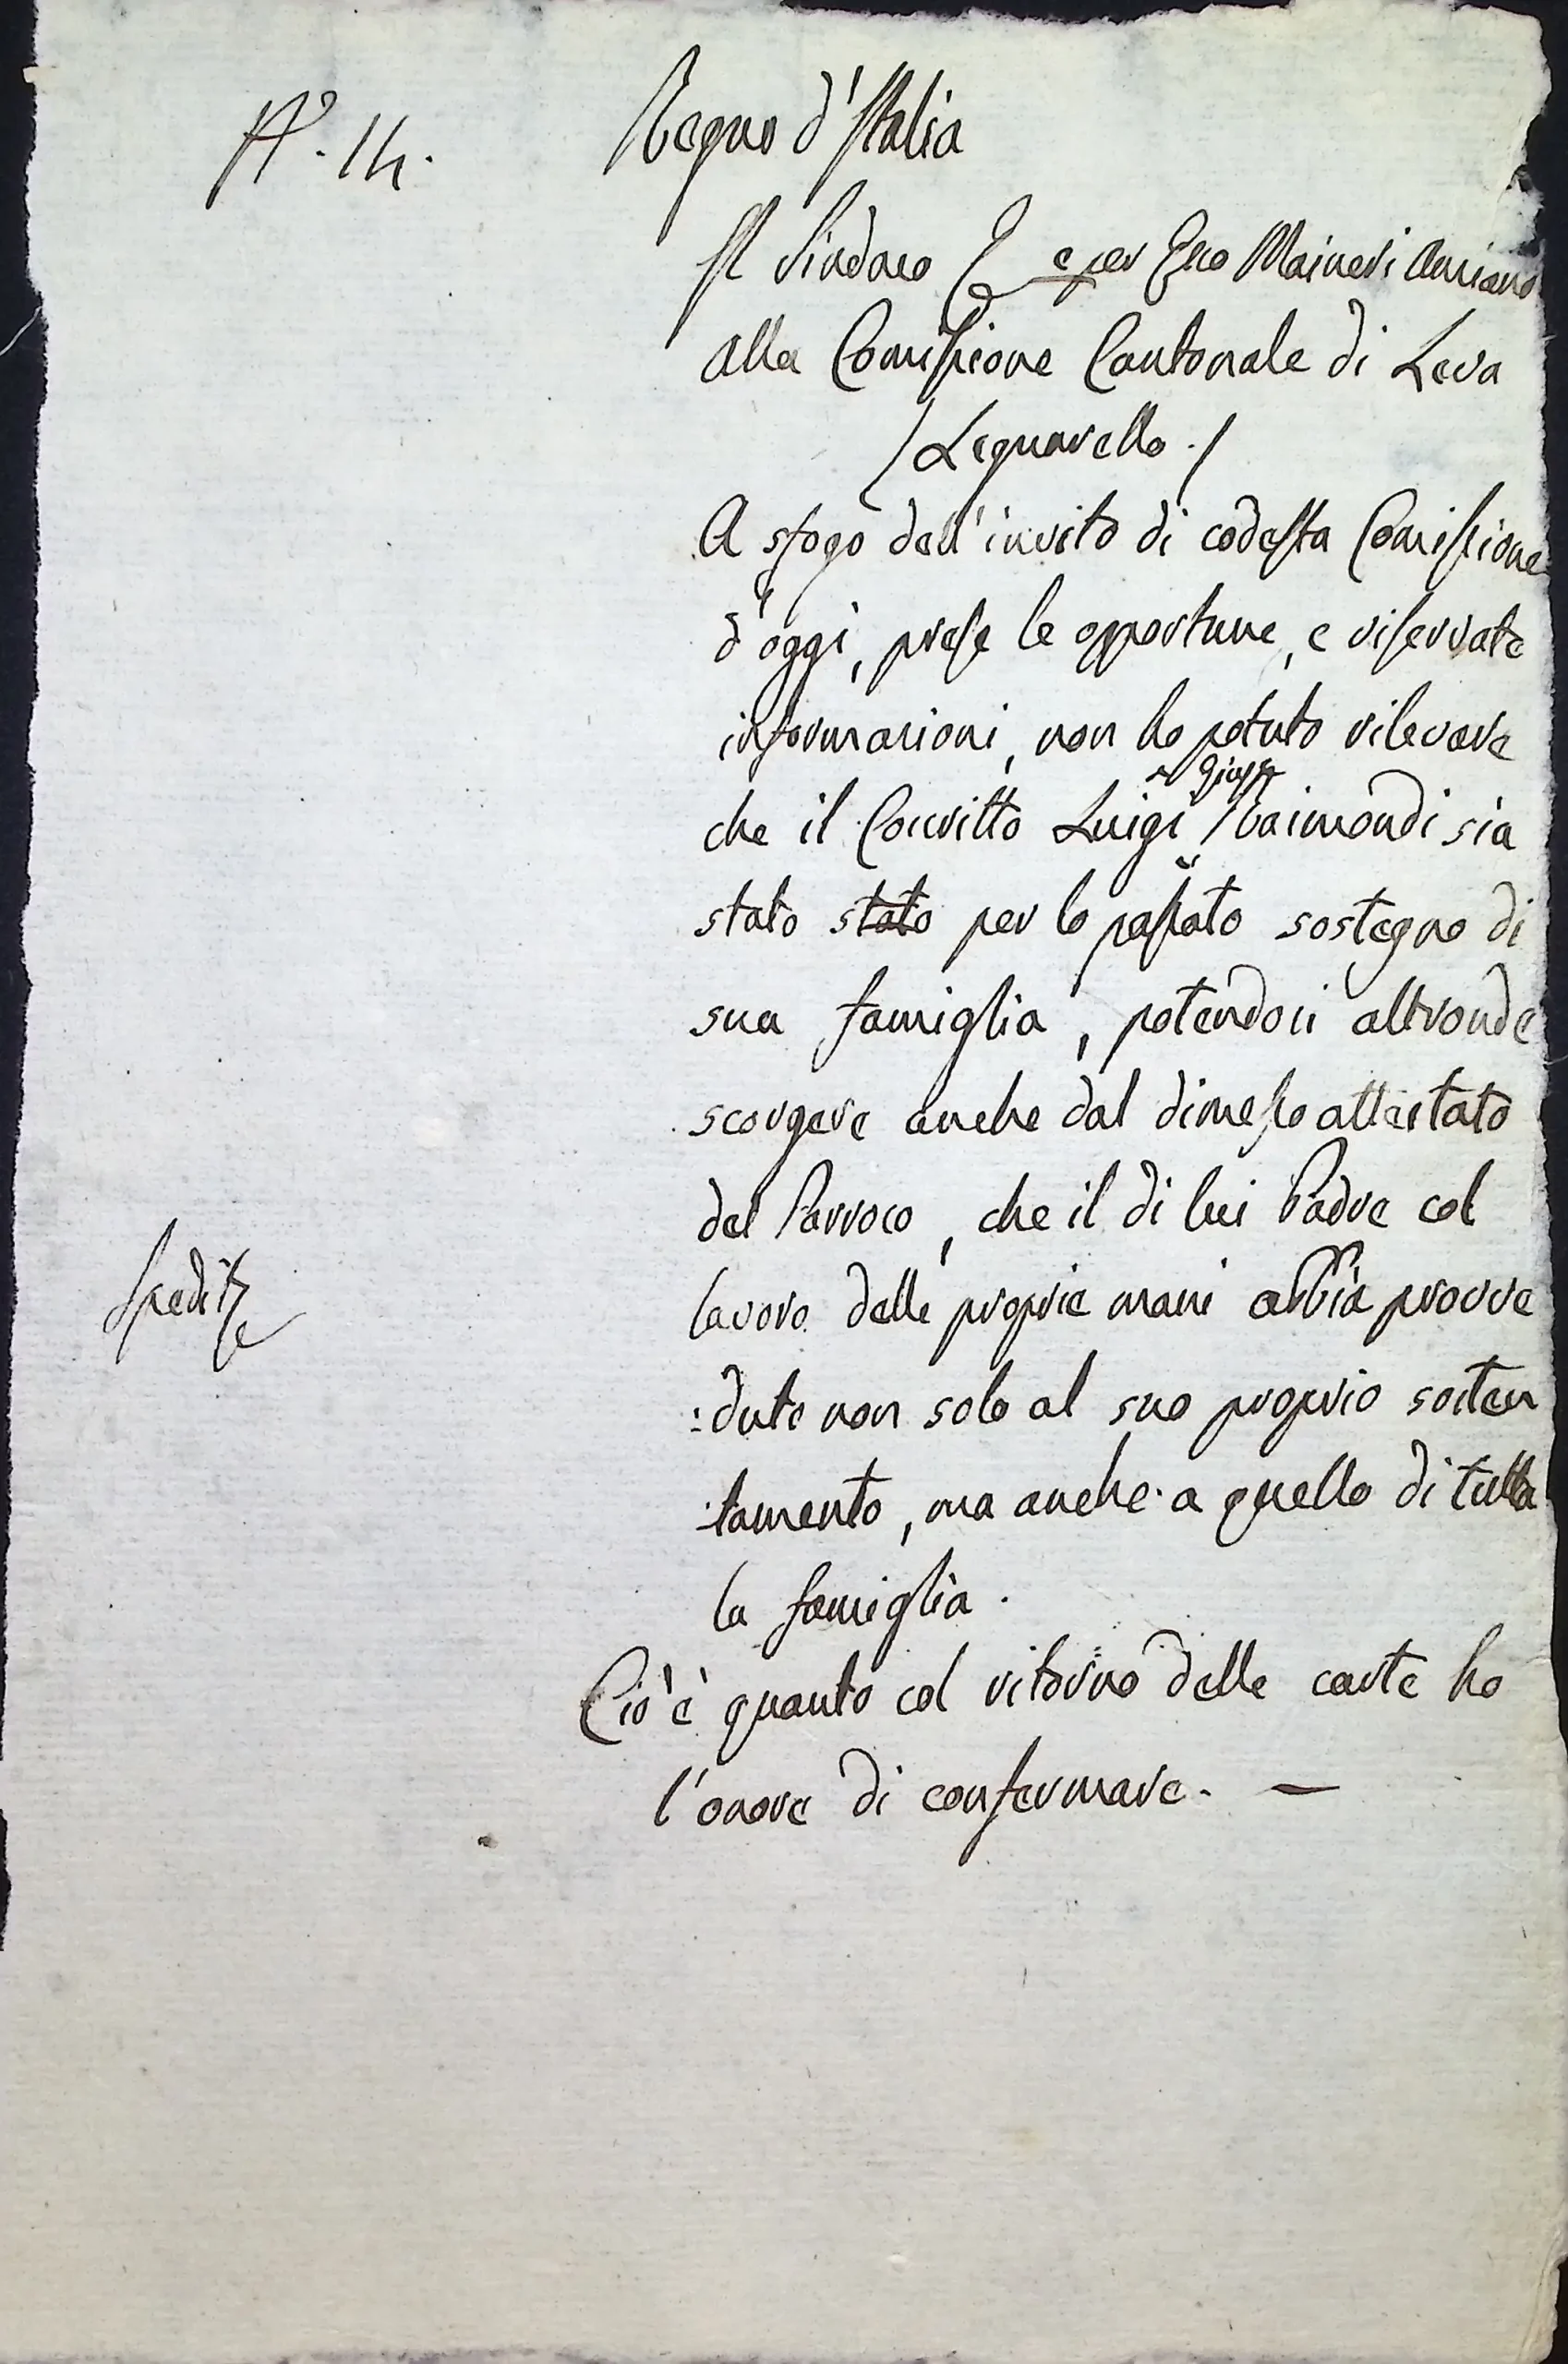 N°. 14.
Regno d'Italia
Il Sindaco e per Esso Maineri Anziano
Alla Comissione Cantonale di Leva
/ Legnarello. /
A sfogo dell'invito di codesta Comissione
d'oggi, prese le opportune, e riservate
informazioni, non ho potuto rilevare
che il Coscritto Luigi Gius.e Raimondi sia
stato stato per lo passato sostegno di
sua famiglia, potendosi altronde
scorgere anche dal dimesso attestato
del Parroco, che il di lui Padre col
lavoro delle proprie mani abbia provve
:duto non solo al suo proprio sosten
:tamento, ma anche a quello di tutta
la famiglia.
Spedita
Ciò è quanto col ritorno delle carte ho
l'onore di confermare. —